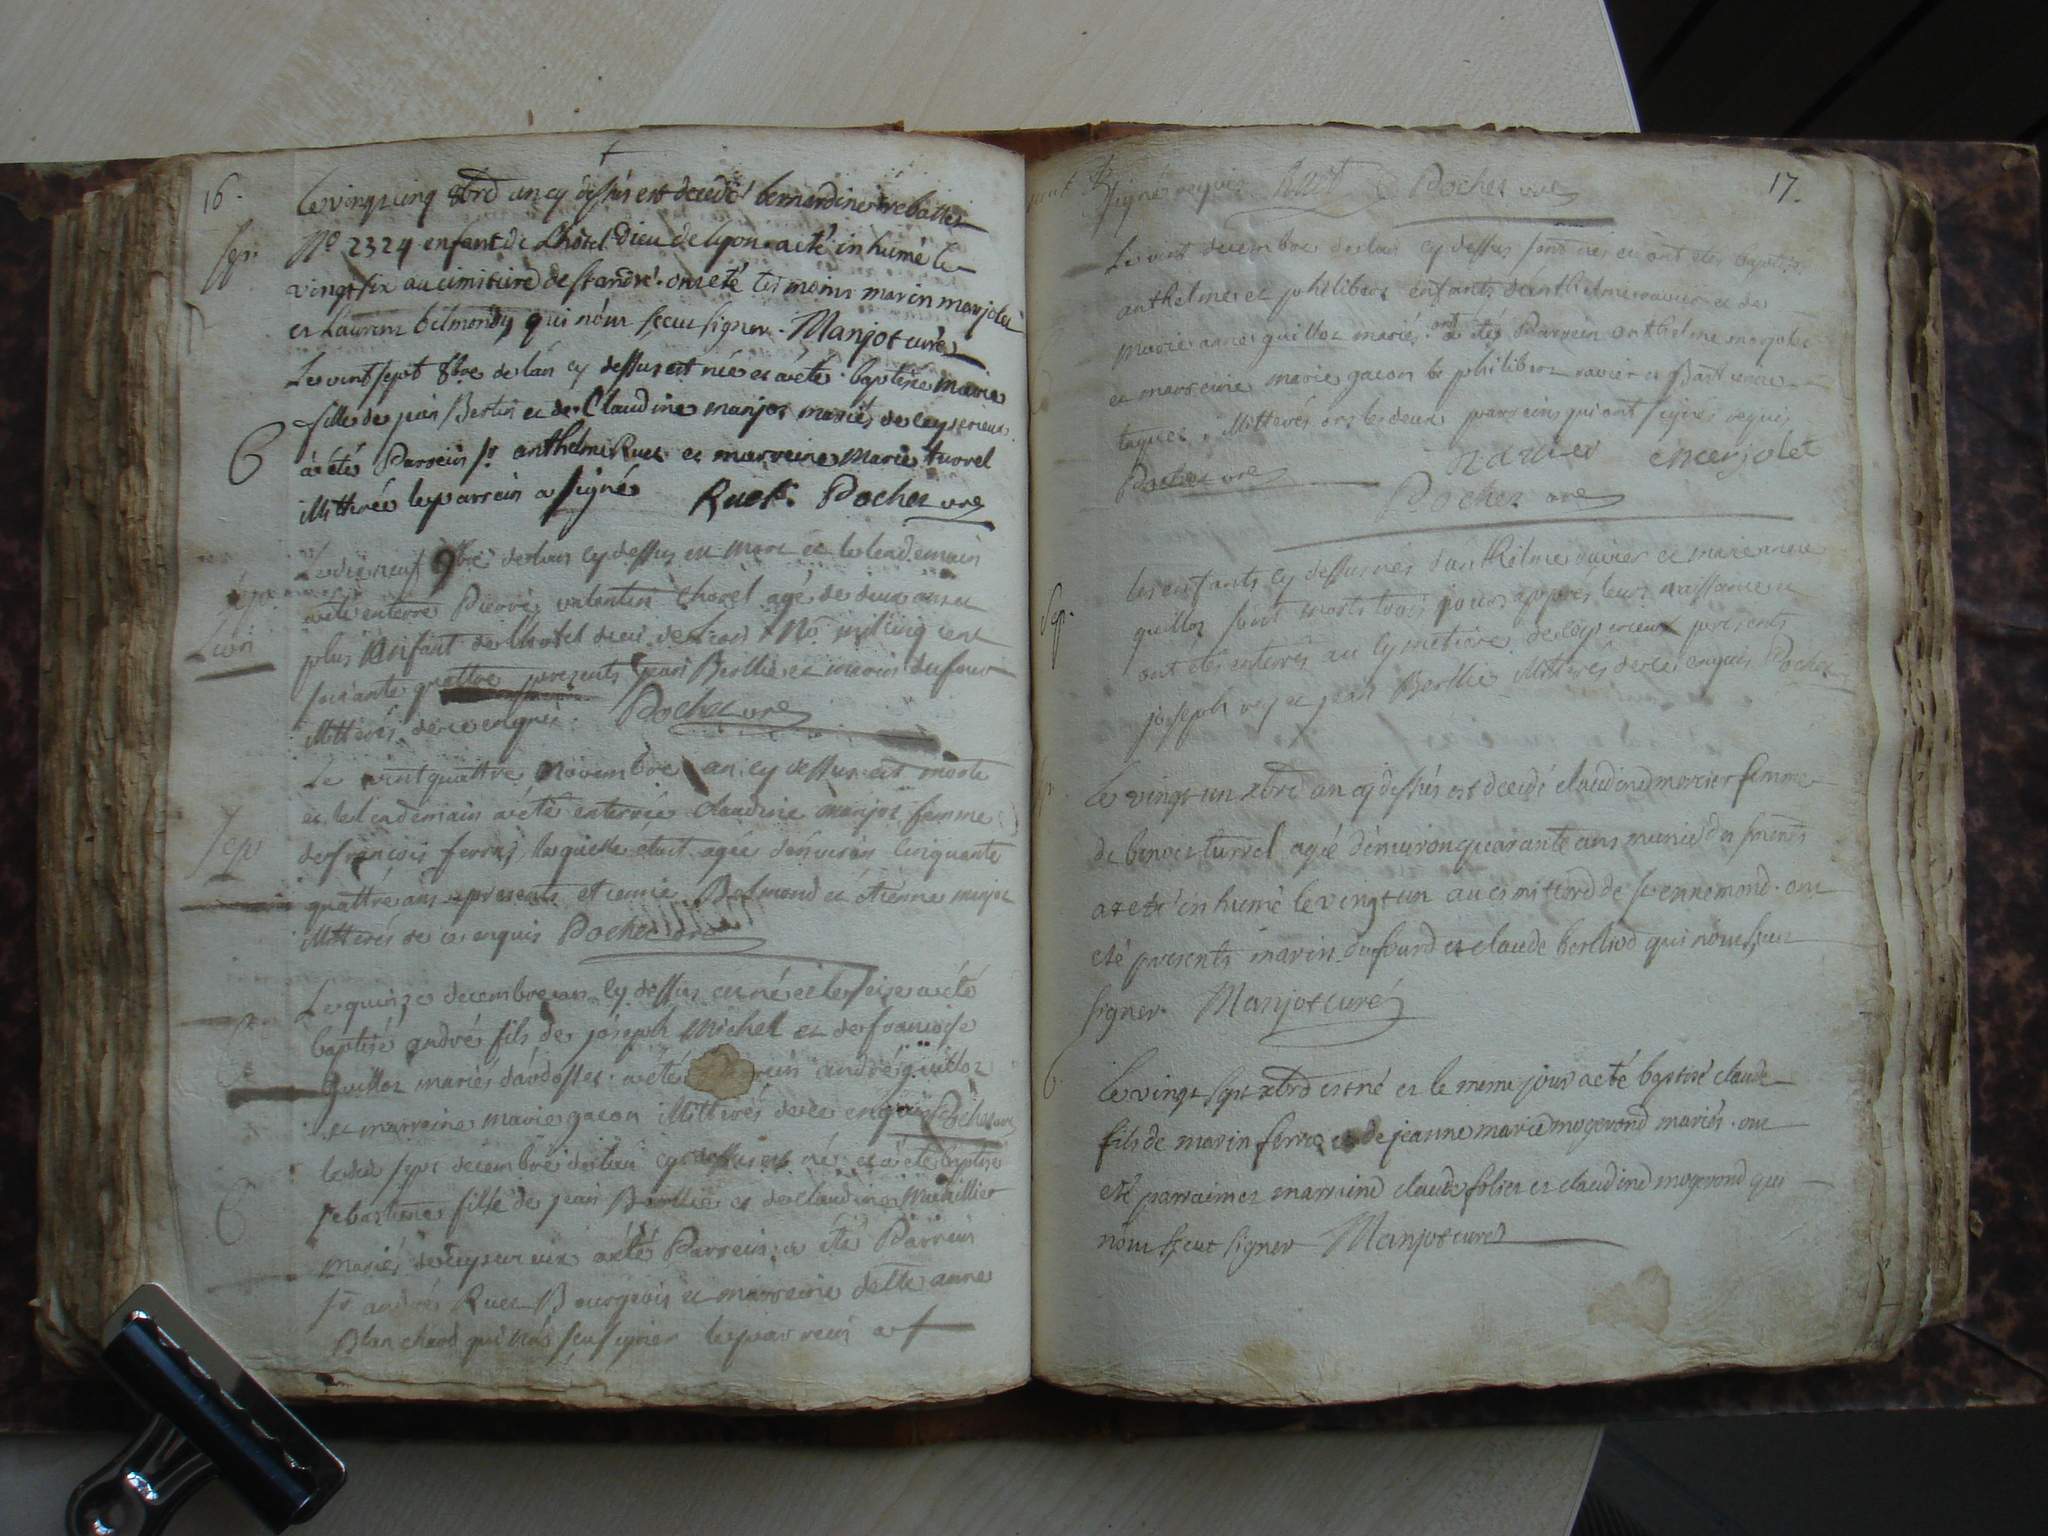 16.
le vingt cinq 8bre an cy dessus est decedé bernardine
Sep.
No 2324 enfant de L'hôtel Dieu de lyon a eté inhumé le
vingt six au cimitiere de st andré. ont eté temoins marin marjolet
et Laurent belmondy qui n'ont sceut signer. Manjot curé
Le vint sept 8bre de lan cy dessus est née et a eté baptisée marie
fille de jean Bertin et de Claudine manjot mariés de leyserieux
B
a été Parrein sr anthelme Ruet et marreine Marie turrel
illitterée le parrein a signé Ruet. Pochet vre
Le dix neuf 9bre de lan cy dessus est mort et le lendemain
Sep.
a été enterré Pierre valentin Chorel agé de deux ans et
Lion
plus Enfant de l'hotel dieu de Lion No mil cinq cent
soixante quattre presents jean Berllie et marin dufour
illitterés de ce enquis. Pochet vre
Le vint quattre Novembre an cy dessus est morte
et le lendemain a été enterrée Claudine manjot femme
Sep.
de françois ferraz, laquelle etoit agée d'environ Cinquante
quattre ans presents etienne Belmond et etienne manjot
illitterés de ce enquis Pochet vre
Le quinze decembre an cy dessus est né et le seize a été
baptisé andré fils de joseph Michel et de françoise
guilloz mariés d'ardosset a été andré guilloz
et marreine marie gacon illitterés de ce enquis Pochet vre
Le dix sept decembre de lan cy dessus est né et a été baptisé
B
sebastiene fille de jean Berllie et de claudine
mariés de leyserieux a été Parrein a été Parrein
sr andré Ruet Bourgeois et marreine delle anne
Blanchard qui n'a sceu signer le parrein a
17.
signé requis Ruet Pochet vre
Le vint decembre de lan cy dessus sont nés et ont étés baptisés
anthelme et philibert enfants d'anthelme ravier et de
Marie anne guilloz mariés. ont étés Parrein anthelme marjolet
et marreine marie gacon philibert ravier et
illitterés ors les deux parreins qui ont signés requis
Pochet vre ravier marjolet
Pochet vre
Sep.
les enfants cy dessus nés d'anthelme ravier et marie anne
guilloz sont morts trois jours apprès leur naissance et
ont étés enterrés au cymetiere de leyserieux presents
joseph rey et jean Berllie illitterés de ce enquis Pochet
le vingt un xbre an cy dessus est decedé claudine mercier femme
de benoit turrel agée d'environ quarante ans munie des sacrements
a eté inhumé le vingt un au cimitiere de st ennemond. ont
eté presents marin dufourd et claude berliod qui n'ont sceut
signer. Manjot curé
B.
le vingt sept xbre est né et le meme jour a eté baptisé claude
fils de marin ferraz et de jeanne marie mogerond mariés. ont
eté parrain et marraine claude folliet et claudine mogerond qui
n'ont sceut signer Manjot curé